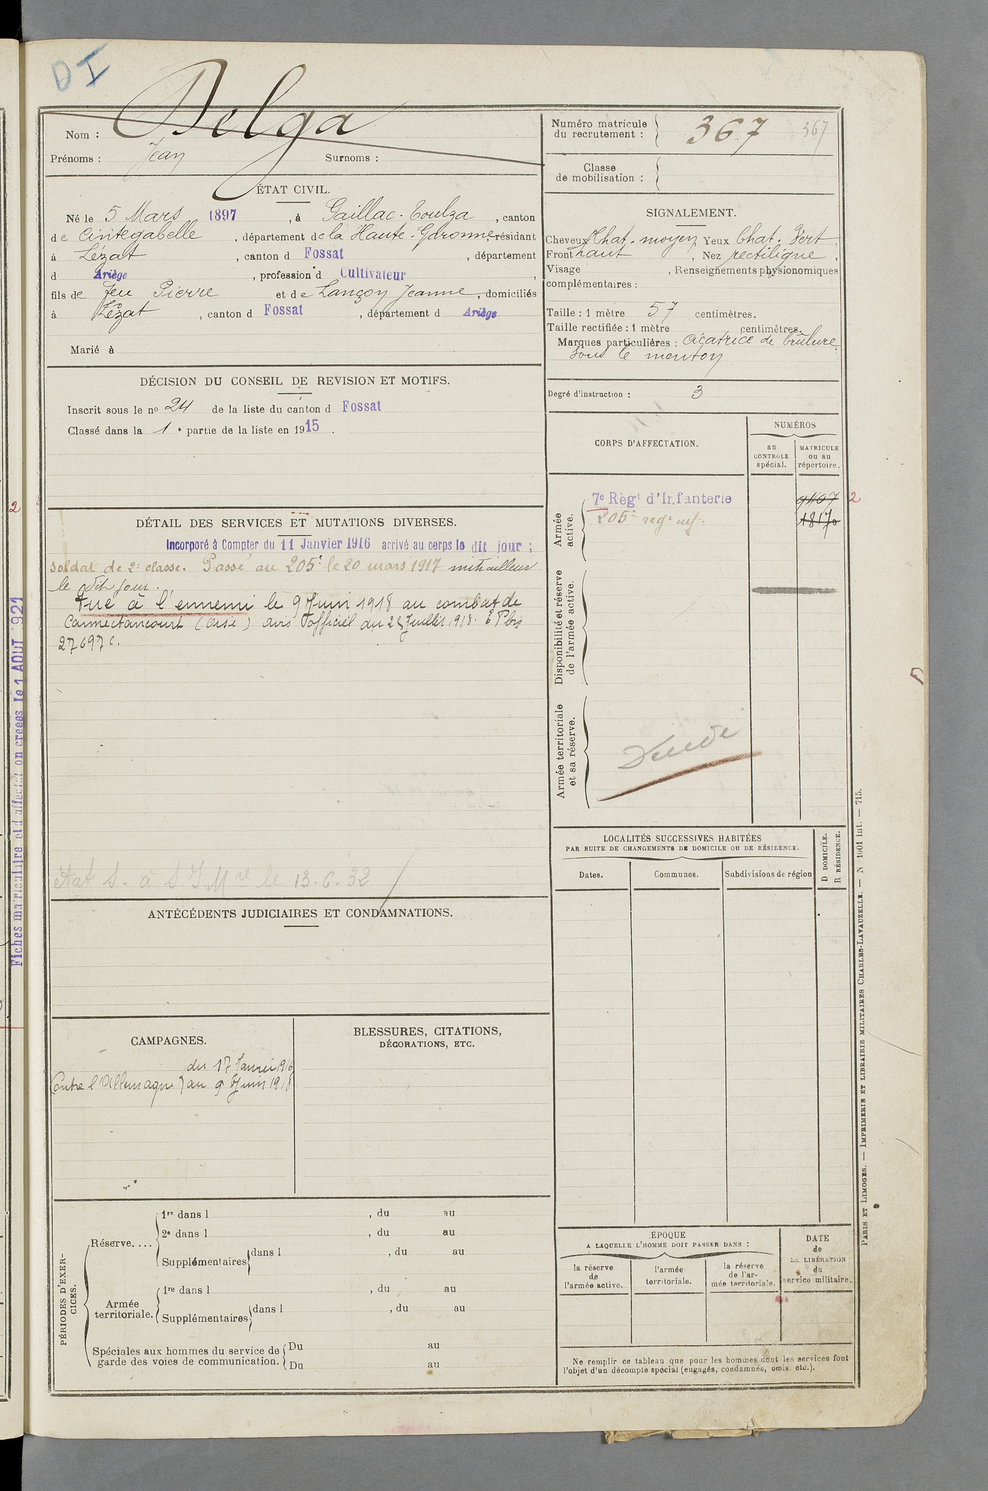 DI
Nom : Delga
Prénoms : Jean Surnoms :
ÉTAT CIVIL.
Né le 5 Mars 1897, à Gaillac-Toulza, canton
de Cintegabelle, département de la Haute-Garonne, résidant
à Lézat, canton d Fossat, département
d Ariège, profession d Cultivateur
fils de feu Pierre et de Lançon Jeanne, domiciliés
à Lézat, canton d Fossat, département d Ariège
Marié à
DÉCISION DU CONSEIL DE REVISION ET MOTIFS.
Inscrit sous le nº 24 de la liste du canton d Fossat
Classé dans la 1e partie de la liste en 1915.
DÉTAIL DES SERVICES ET MUTATIONS DIVERSES.
Incorporé à Compter du 11 Janvier 1916 arrivé au corps le dit jour ;
soldat de 2e classe. Passé au 205e le 20 mars 1917 mitrailleur
le dit jour.
Tué à l'ennemi le 9 Juin 1918 au combat de
Cannectancourt (Oise) avis officiel du 25 Juillet 1918.
27697 c.
Etat S. à S.I.Mre le 13.6.32
ANTÉCÉDENTS JUDICIAIRES ET CONDAMNATIONS.
CAMPAGNES.
du 17 Janvier 1916
Contre l'Allemagne } au 9 Juin 1918
BLESSURES, CITATIONS,
DÉCORATIONS, ETC.
PÉRIODES D'EXERCICES.
Réserve....
1re dans l , du au
2e dans l , du au
Supplémentaires dans l , du au
Armée territoriale.
1re dans l , du au
Supplémentaires dans l , du au
Spéciales aux hommes du service de garde des voies de communication.
Du au
Du au
Numéro matricule
du recrutement : 367 367
Classe
de mobilisation :
SIGNALEMENT.
Cheveux Chat. moyen Yeux Chat. Vert
Front haut, Nez rectiligne,
Visage , Renseignements physionomiques
complémentaires :
Taille : 1 mètre 57 centimètres.
Taille rectifiée : 1 mètre centimètres.
Marques particulières : cicatrice de brûlure
sous le menton
Degré d'instruction : 3
CORPS D'AFFECTATION.
NUMÉROS
au CONTROLE spécial.
MATRICULE ou au répertoire.
Armée active.
7e Régt d'Infanterie 9407 2
205e regt inf. 1817
Disponibilité et réserve de l'armée active.
Armée territoriale et sa réserve.
Décédé
LOCALITÉS SUCCESSIVES HABITÉES
PAR SUITE DE CHANGEMENTS DE DOMICILE OU DE RÉSIDENCE.
Dates. Communes. Subdivisions de région
D DOMICILE. R RÉSIDENCE.
ÉPOQUE
A LAQUELLE L'HOMME DOIT PASSER DANS :
la réserve de l'armée active.
l'armée territoriale.
la réserve de l'armée territoriale.
DATE de LA LIBÉRATION du service militaire.
Ne remplir ce tableau que pour les hommes dont les services font
l'objet d'un décompte spécial (engagés, condamnés, omis, etc.).
PARIS ET LIMOGES. — IMPRIMERIE ET LIBRAIRIE MILITAIRES CHARLES-LAVAUZELLE. — N° 1001 int. — 715.
2
Fiches matriculaire et d'affectation créées le 1 AOUT 1921